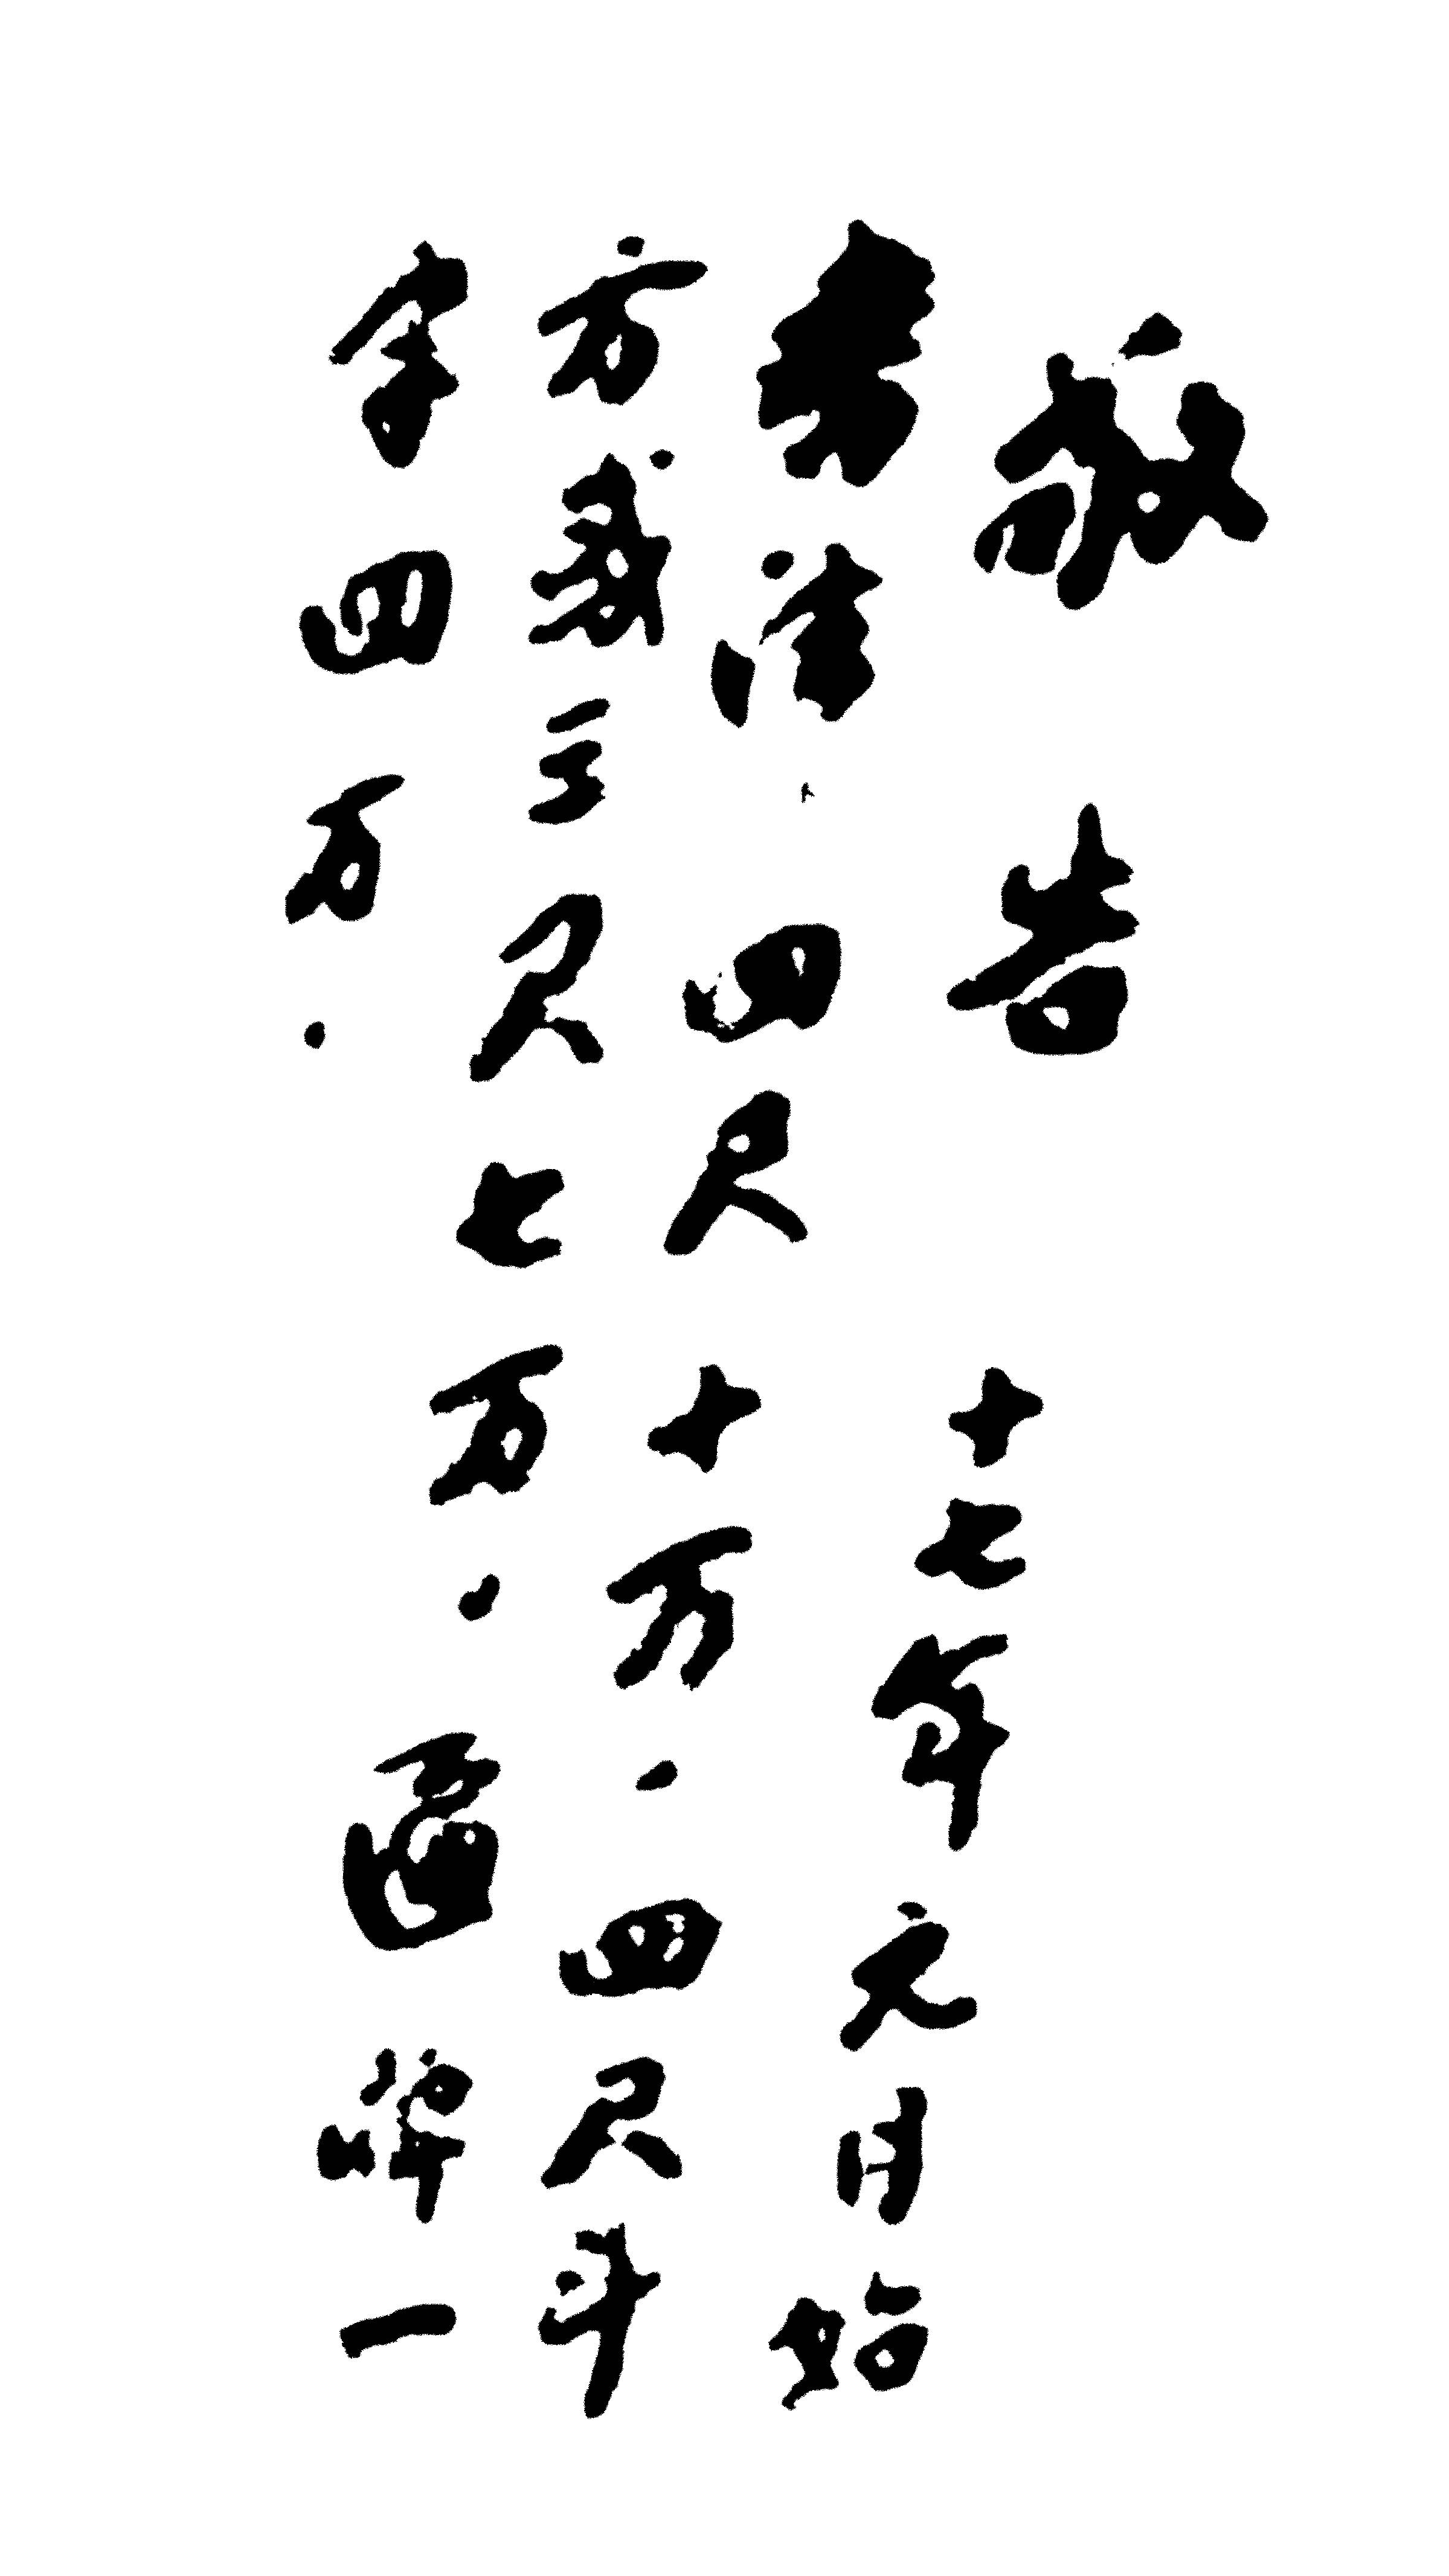 敬告 十七年元月始
書法·四尺十万·四尺斗
方或三尺七万·匾牌一
字四万·